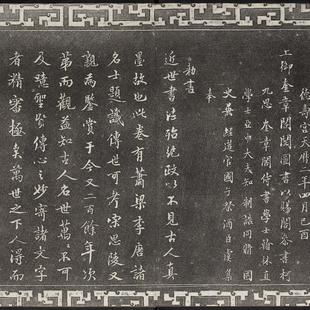 德壽宮天曆二年四月己酉
上御奎章閣閱圖書以賜閣參書柯
九思奎章閣侍書學士翰林直
學士亞中大夫知制誥同脩國
史兼經筵官國子祭酒臣虞集
奉
勅書
近世書法殆絶政以不見古人真
墨故也此卷有蕭梁李唐諸
名士題識傳世可考宋思陵又
親為鑒賞于今又二百餘年次
第而觀益知古人名世萬萬不可
及聖賢傳心之妙寄諸文字
者精審極矣萬世之下人得而